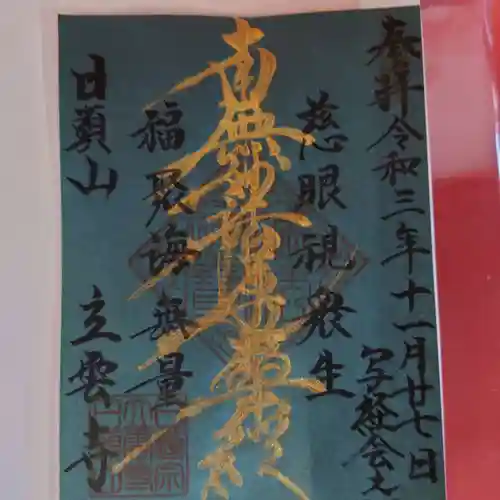 奉拝 令和三年十一月廿七日
写経会之
慈眼視衆生
南無妙法蓮華経
福聚海無量
日頭山 立雲寺